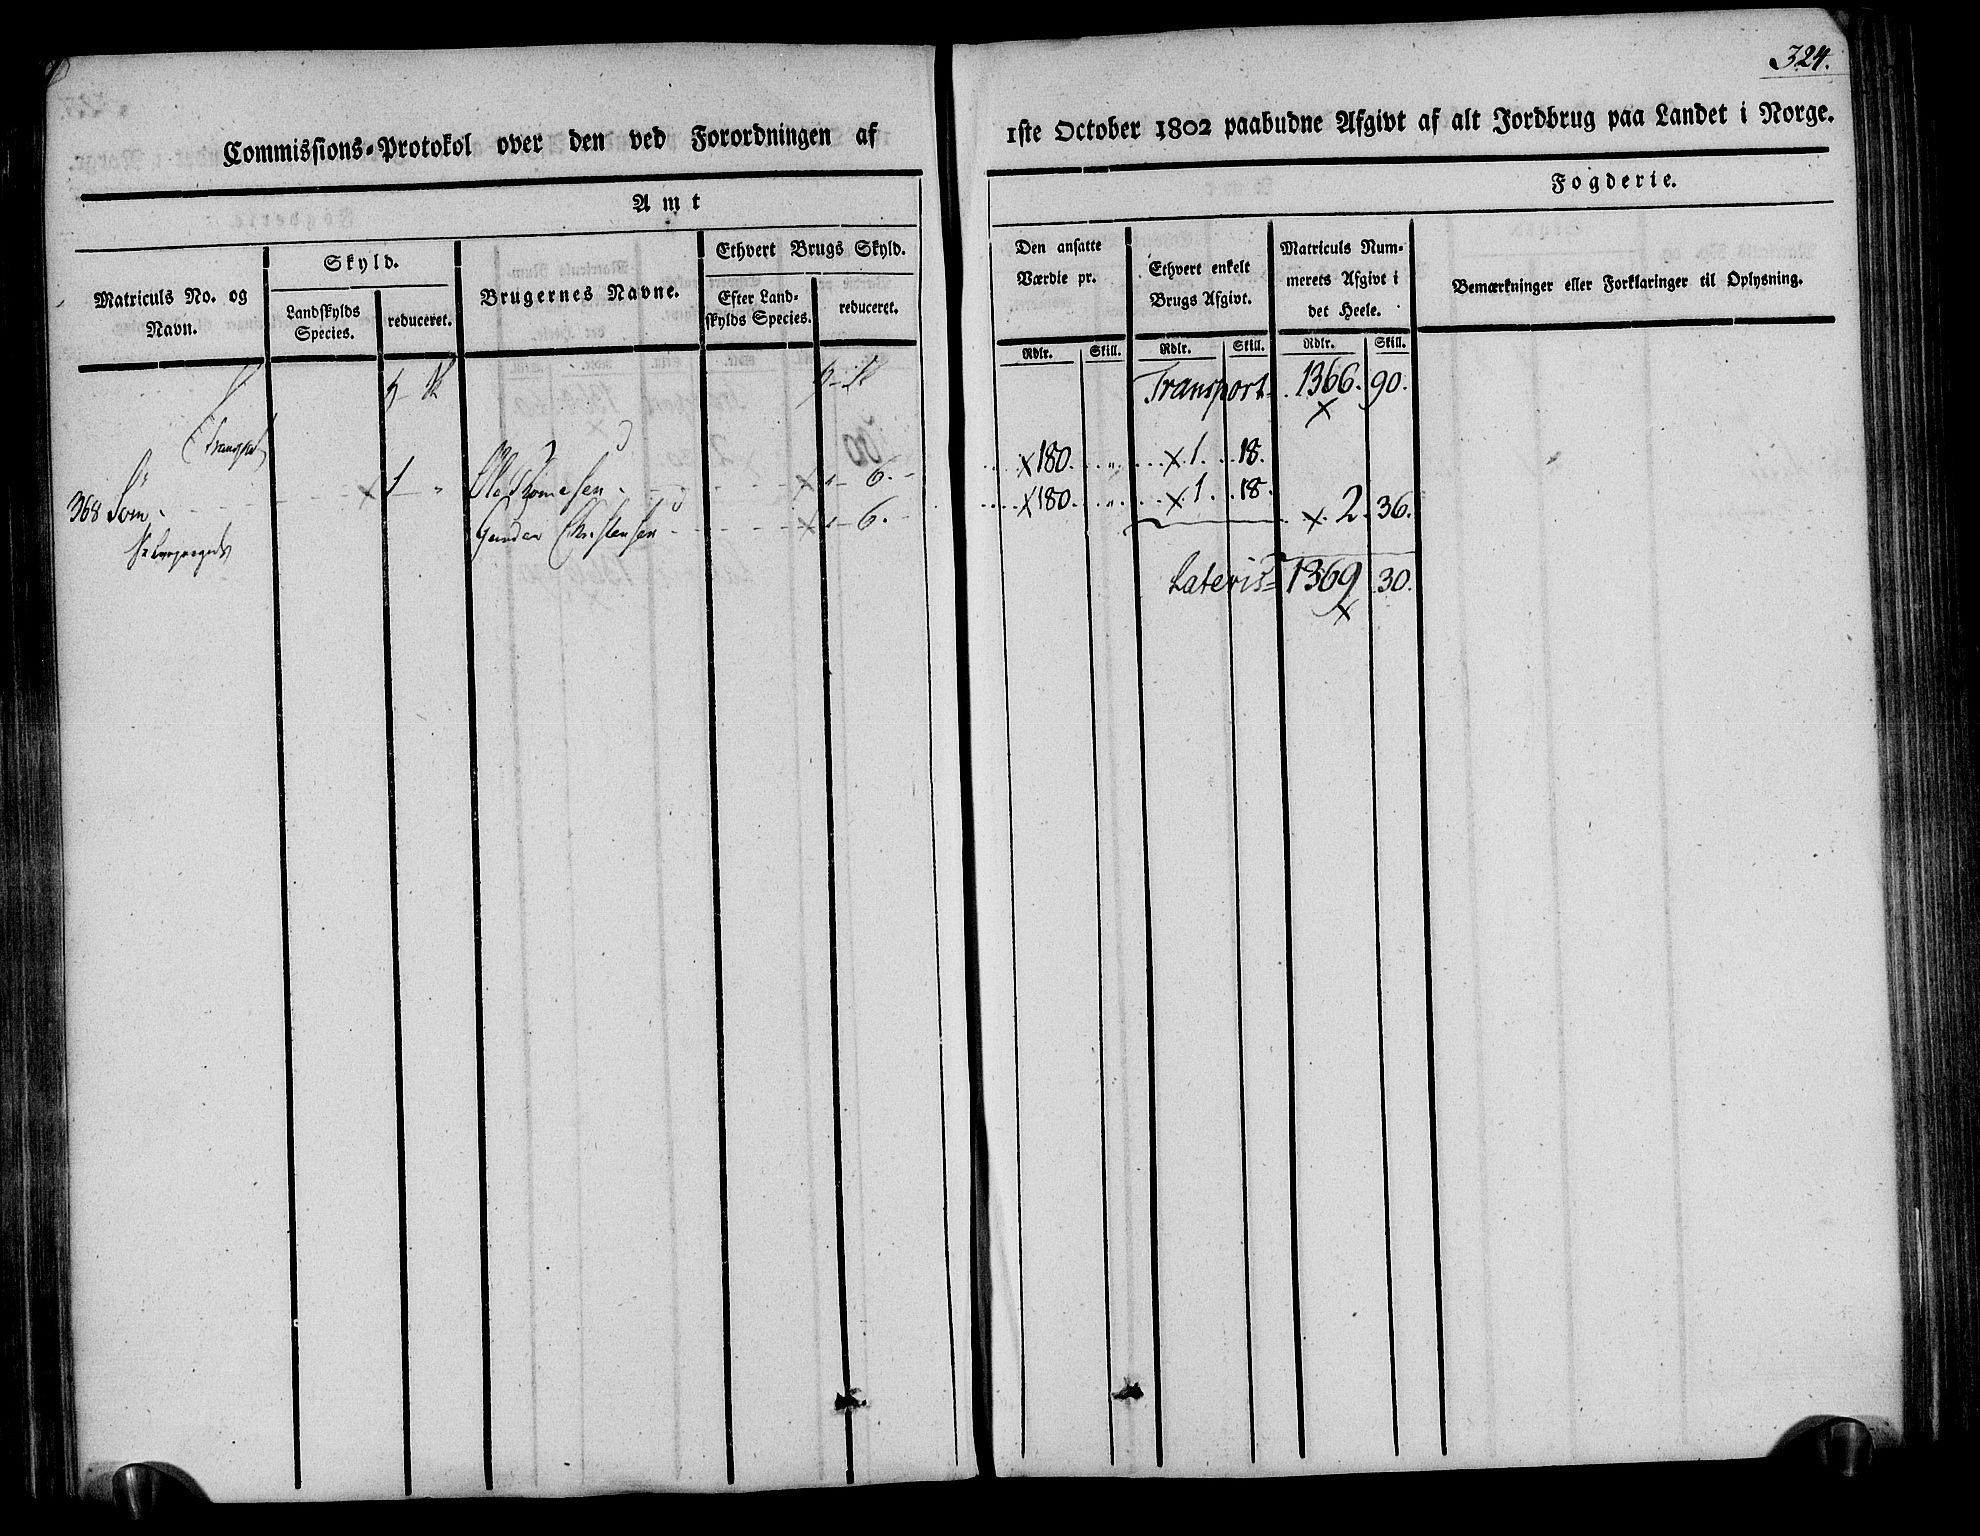 324.
Commissions-Protokol over den ved Forordningen af 1ste October 1802 paabudne Afgivt af alt Jordbrug paa Landet i Norge.
Amt
Fogderie.
Matriculs No. og Navn.
Skyld.
Landskylds Species.
reduceret.
Brugernes Navne.
Ethvert Brugs Skyld.
Efter Landskylds Species.
reduceret.
Den ansatte Værdie pr.
Rdlr. Skill.
Ethvert enkelt Brugs Afgivt.
Rdlr. Skill.
Matriculs Nummerets Afgivt i det Heele.
Rdlr. Skill.
Bemærkninger eller Forklaringer til Oplysning.
Transport 1366. 90.
Transport
368 Søm 1 " Ole Tomesen " 6. 180. " 1. 18.
Gunder Christensen " 6. 180. " 1. 18. 2. 36.
Lateris 1369 30.